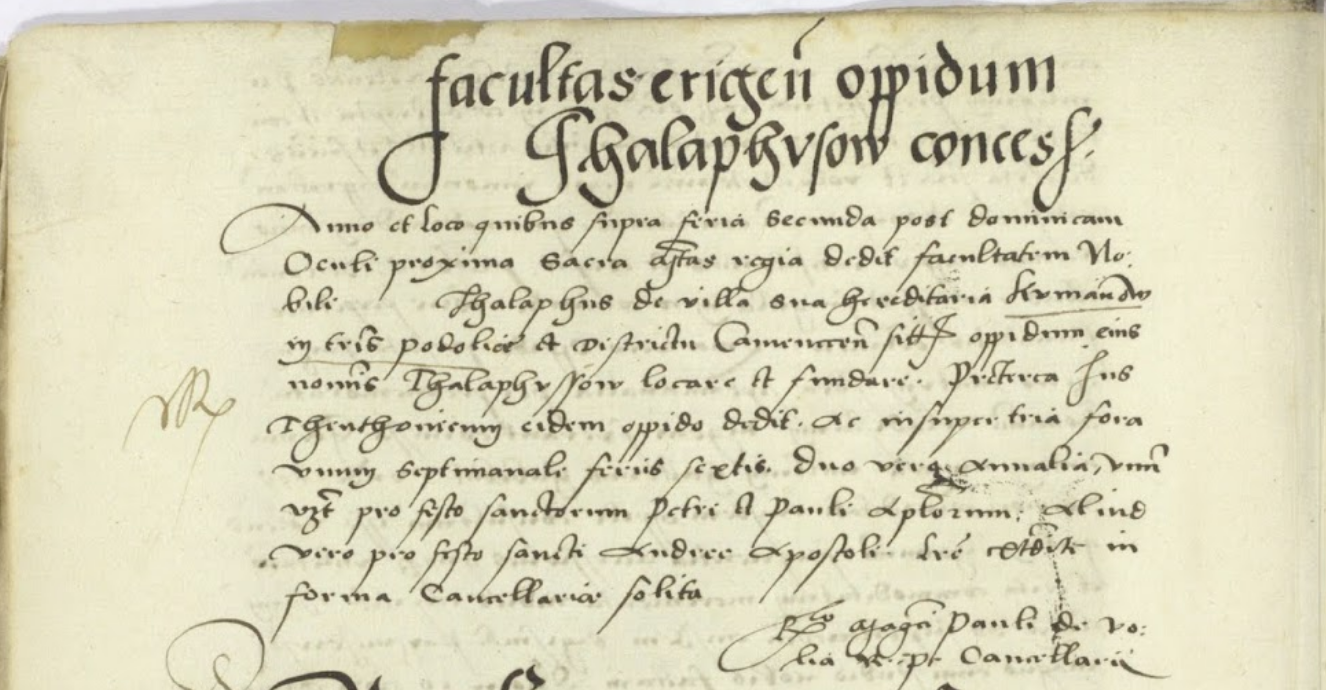 facultas erigen̄ oppidum
Thalaphvsow concess.
Anno et loco quibus supra feria Secunda post dominicam
Oculi proxima Sacra Mtas regia dedit facultatem No:
bili Thalaphus de villa sua hereditaria
in tris podolie et Districtu Camenecen̄ oppidum eius
nomis Thalaphvssow locare et fundare. Preterea Jus
Thenthonicum eidem oppido dedit. Ac insuper tria fora
vnum Septimanale feriis sextis. duo vero Annalia, vnū
vzt pro festo sanctorum Petri et Pauli Aplorum: Aliud
vero pro festo sancti Andree Apostoli. Lrē in
forma Cancellarie solita
Rtio Magci Pauli de vo:
lia R. P. Cancellarii